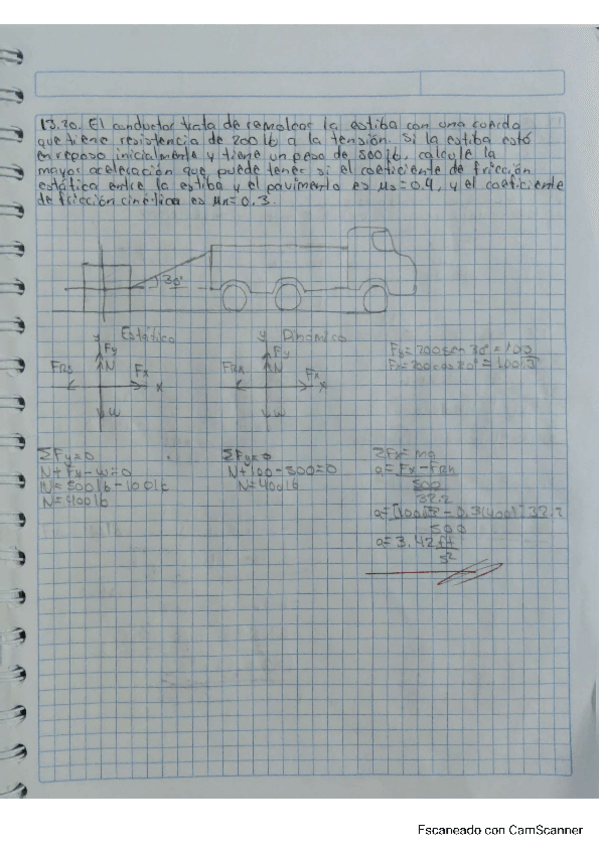 13.20. El conductor trata de remolcar la estiba con una cuerda
que tiene resistencia de 200 lb a la tensión. Si la estiba está
en reposo inicialmente y tiene un peso de 500 lb, calcule la
mayor aceleración que puede tener si el coeficiente de fricción
estática entre la estiba y el pavimento es μs=0.4, y el coeficiente
de fricción cinética es μk=0.3.
30°
Estático
y Dinámico
Fy
N
FRs
Fx
x
w
Fy
N
FRk
Fx
x
w
Fy=200sen30°=100
ΣFy=0
N+Fy-w=0
N=500lb-100lb
N=400lb
ΣFy=0
N+100-500=0
N=400lb
ΣFx=ma
a=Fx-FRk
500
32.2
500
a=3.42 ft
s²
Escaneado con CamScanner